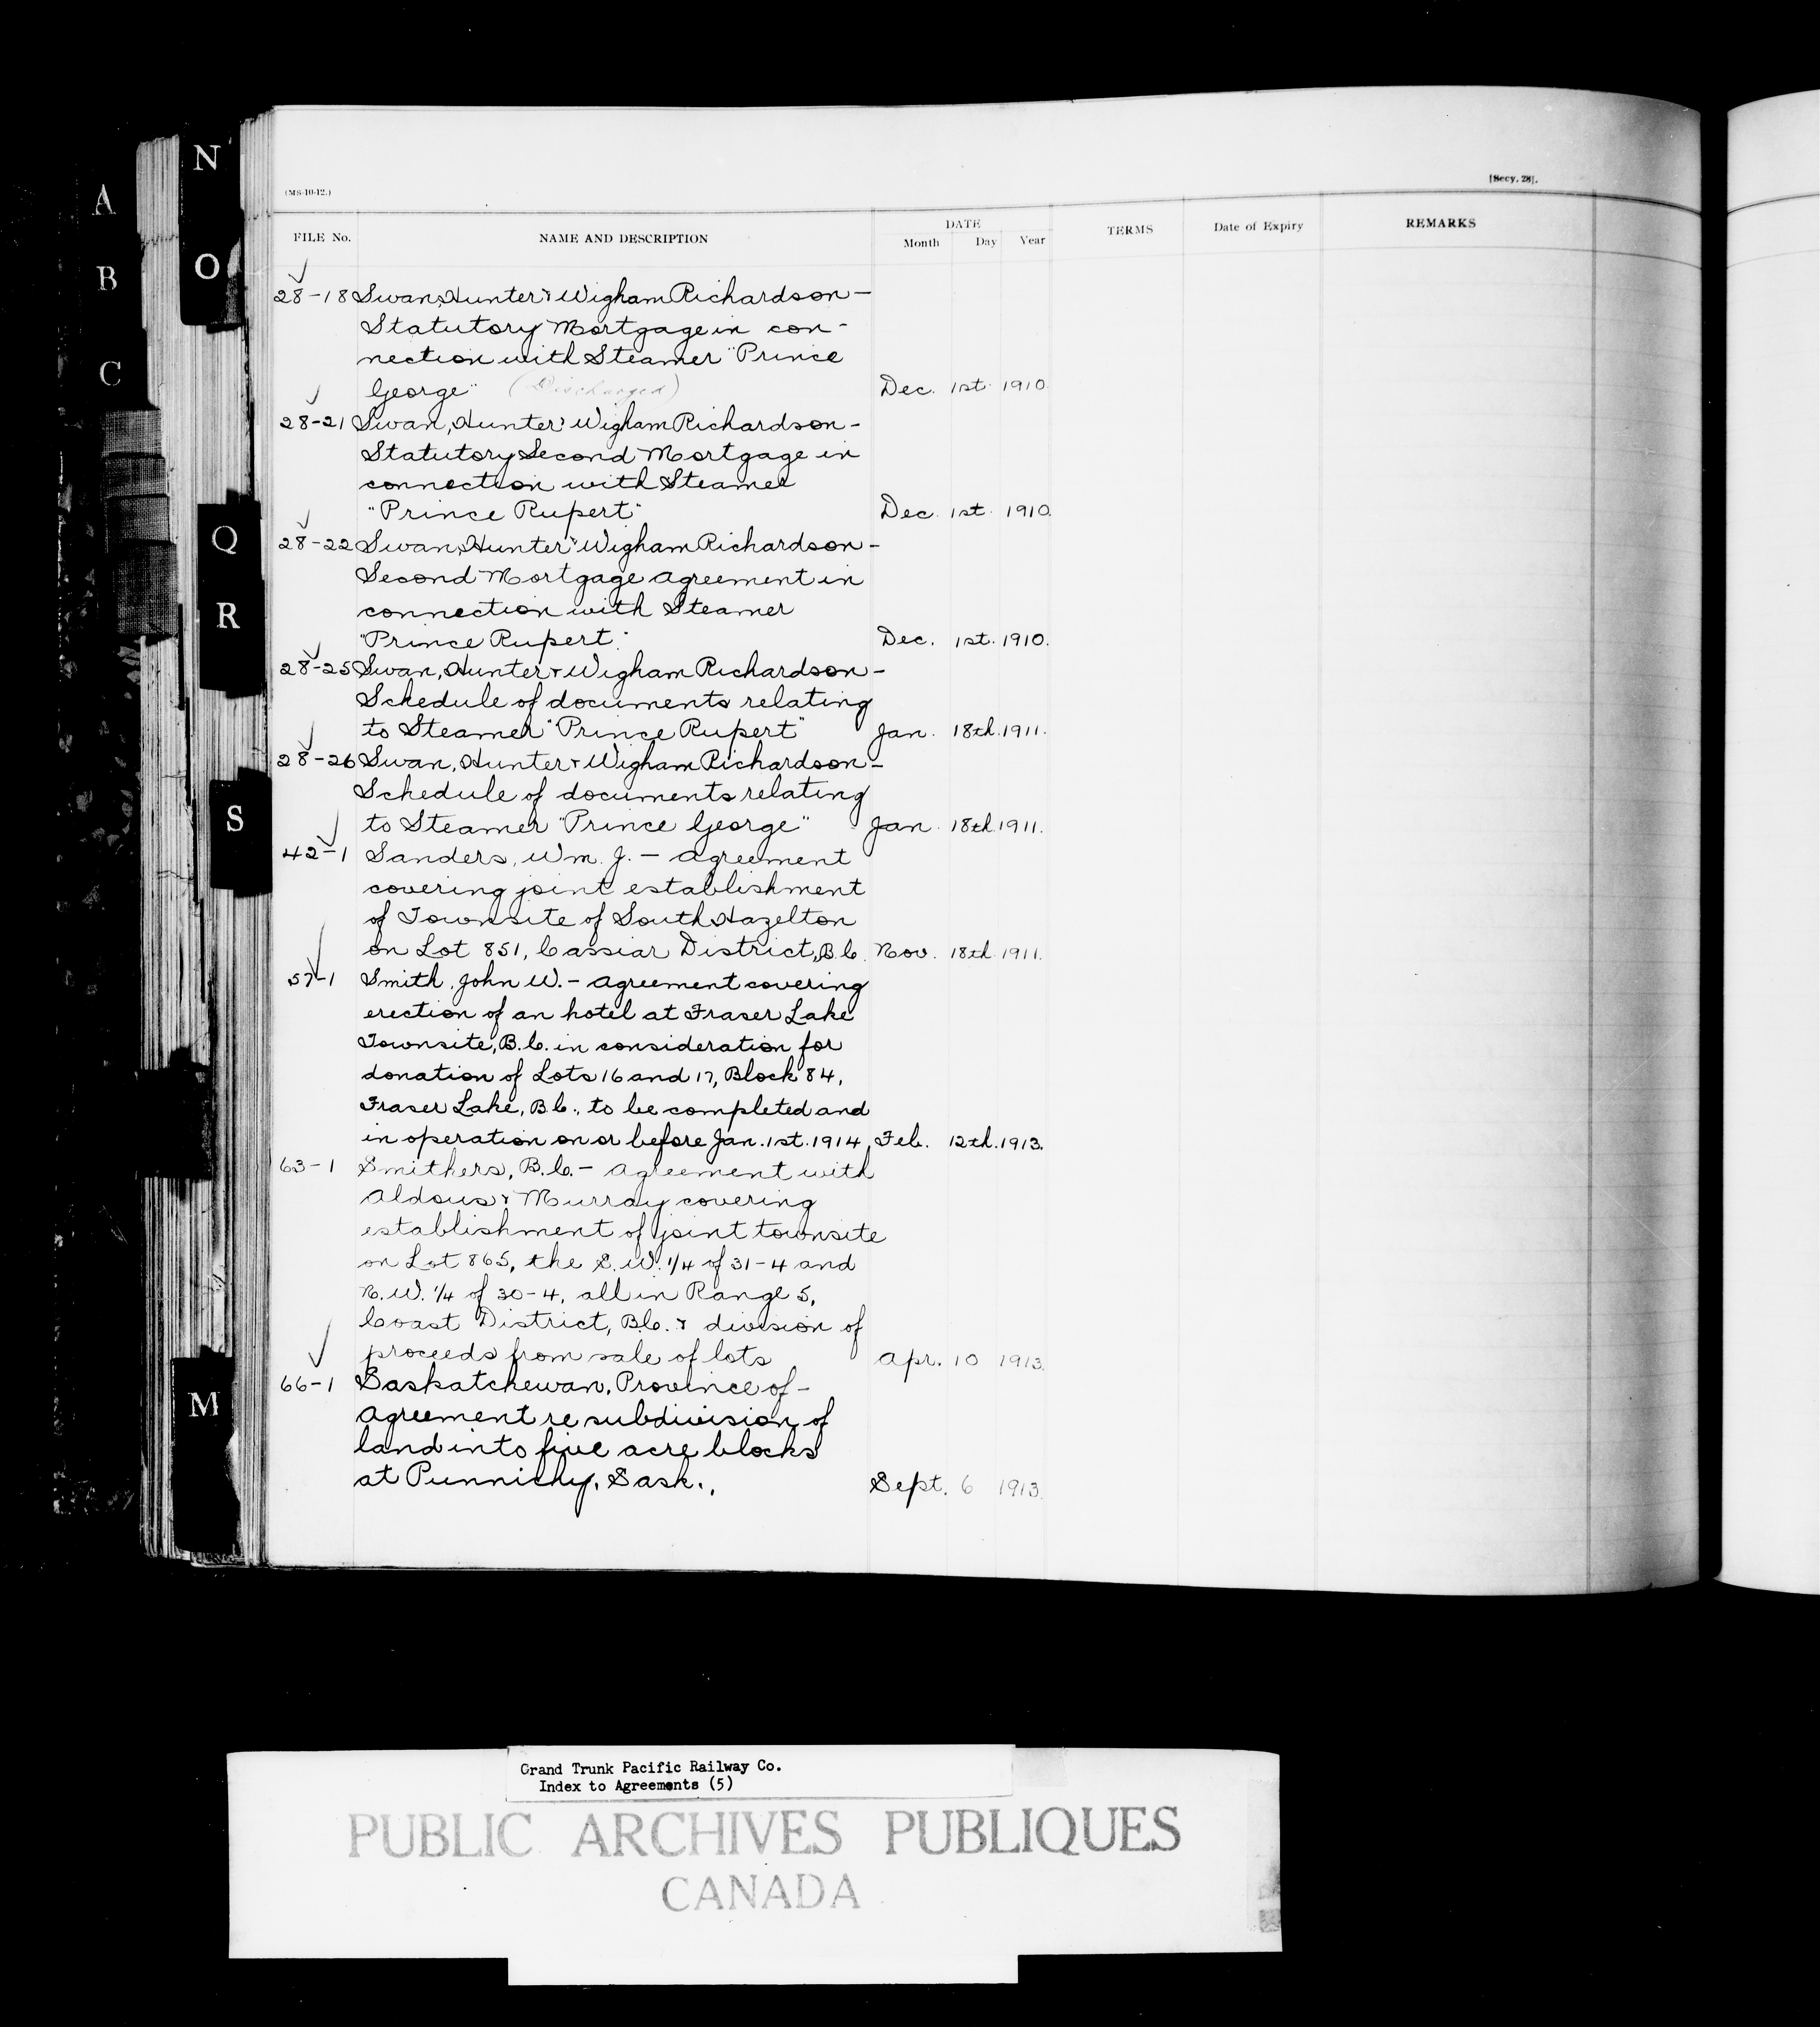 N
A
O
B
C
Q
R
S
M
(MS-10-12.)
[Secy. 28].
FILE No. NAME AND DESCRIPTION DATE Month Day Year TERMS Date of Expiry REMARKS
28-18 Swan, Hunter & Wigham Richardson —
Statutory Mortgage in con-
nection with Steamer "Prince
George" (Discharged) Dec. 1st. 1910.
28-21 Swan, Hunter & Wigham Richardson -
Statutory Second Mortgage in
connection with Steamer
"Prince Rupert" Dec. 1st. 1910.
28-22 Swan, Hunter & Wigham Richardson -
Second Mortgage agreement in
connection with Steamer
"Prince Rupert." Dec. 1st. 1910.
28-25 Swan, Hunter & Wigham Richardson -
Schedule of documents relating
to Steamer "Prince Rupert" Jan. 18th. 1911.
28-26 Swan, Hunter & Wigham Richardson -
Schedule of documents relating
to Steamer "Prince George" Jan. 18th. 1911.
42-1 Sanders, Wm. J. — agreement
covering joint establishment
of Townsite of South Hazelton
on Lot 851, Cassiar District, B.C. Nov. 18th. 1911.
57-1 Smith, John W. - agreement covering
erection of an hotel at Fraser Lake
Townsite, B.C. in consideration for
donation of Lots 16 and 17, Block 84,
Fraser Lake, B.C., to be completed and
in operation on or before Jan. 1st. 1914, Feb. 12th. 1913.
63-1 Smithers, B.C. - agreement with
Aldous & Murray covering
establishment of joint townsite
on Lot 865, the S.W. 1/4 of 31-4 and
N.W. 1/4 of 30-4, all in Range 5,
Coast District, B.C. & division of
proceeds from sale of lots Apr. 10 1913.
66-1 Saskatchewan, Province of -
Agreement re subdivision of
land into five acre blocks
at Punnichy, Sask., Sept. 6 1913.
Grand Trunk Pacific Railway Co.
Index to Agreements (5)
PUBLIC ARCHIVES PUBLIQUES
CANADA